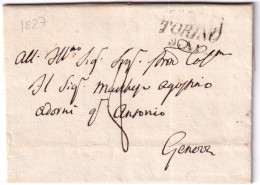 1827
TORINO
All. Ill.mo Sig. Sig. Pron Col.mo
Il Sig. Marchese Agostino
Adorni q. Antonio
Genova